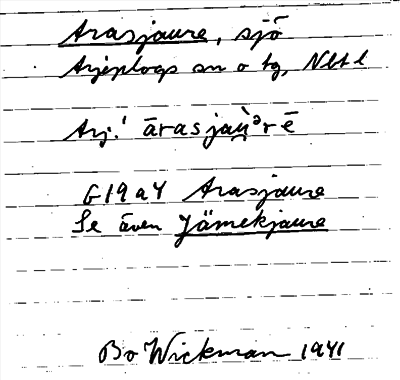 Arasjaure, sjö
Arjeplogs sn o tg, Nbtl
Arj.
G19a4 Arasjaure
Se även Jämekjaure
Bo Wickman 1941